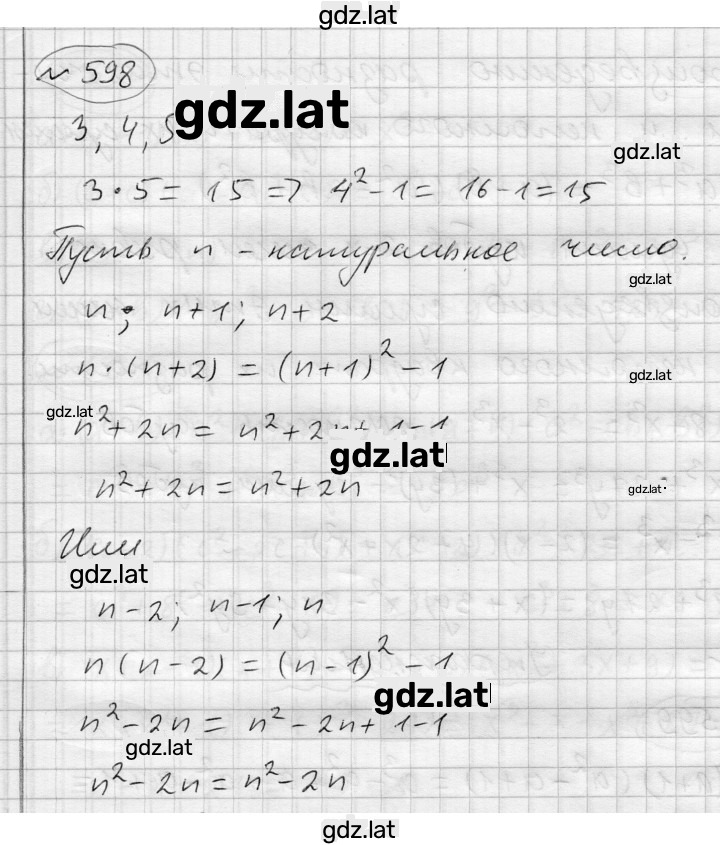 gdz.lat
№ 598
gdz.lat
3, 4, 5
gdz.lat
3 · 5 = 15 => 4² - 1 = 16 - 1 = 15
Пусть n - натуральное число.
gdz.lat
n; n+1; n+2
n · (n+2) = (n+1)² - 1
gdz.lat
gdz.lat
n² + 2n = n² + 2n + 1 - 1
gdz.lat
n² + 2n = n² + 2n
gdz.lat
Или
gdz.lat
n-2; n-1; n
n(n-2) = (n-1)² - 1
gdz.lat
n² - 2n = n² - 2n + 1 - 1
gdz.lat
n² - 2n = n² - 2n
gdz.lat